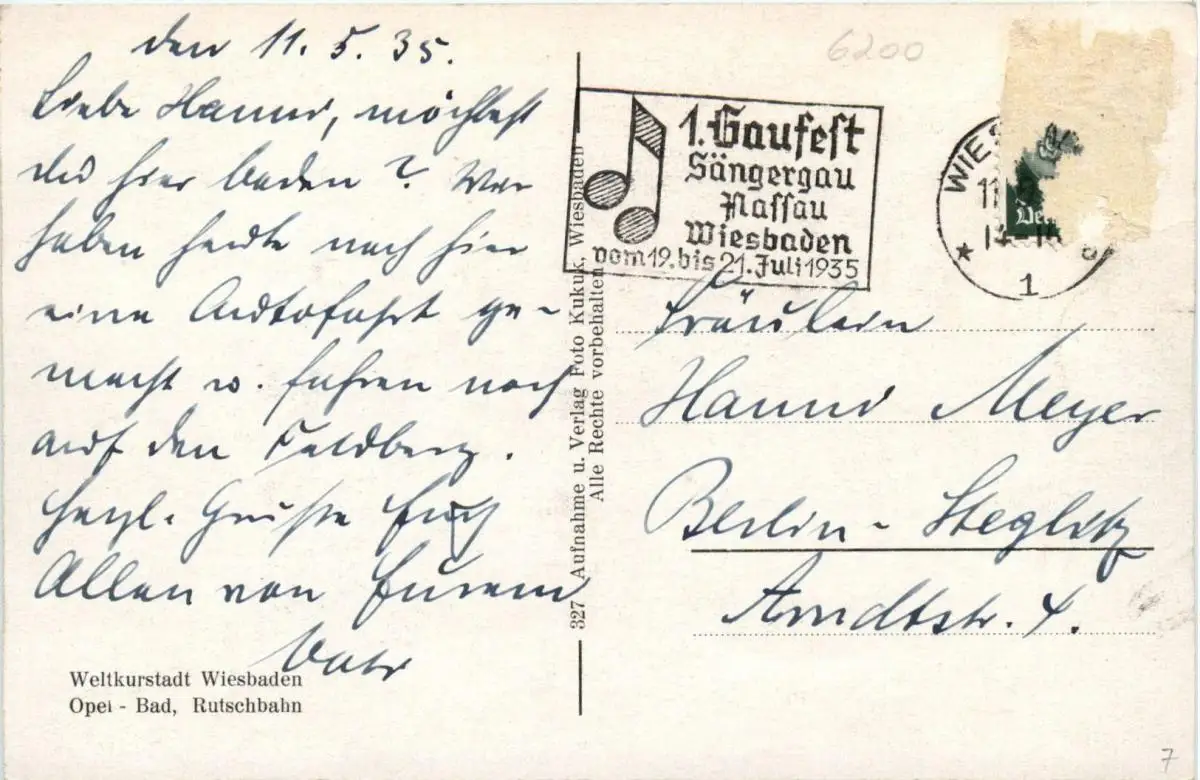 den 11. 5. 35.
Liebe Hanni, möchtest
du hier baden? Wir
haben heute nach hier
eine Autofahrt ge-
macht u. fahren noch
auf den Feldberg.
Herzl. Grüße Euch
Allen von Eurem
Weltkurstadt Wiesbaden
Opel - Bad, Rutschbahn
327 Aufnahme u. Verlag Foto Kukuk, Wiesbaden
Alle Rechte vorbehalten
6200
1. Gaufest
Sängergau
Nassau
Wiesbaden
vom 19. bis 21. Juli 1935
WIES
11
1
Fräulein
Hanni Meyer
Berlin - Steglitz
Arndtstr. 4.
7